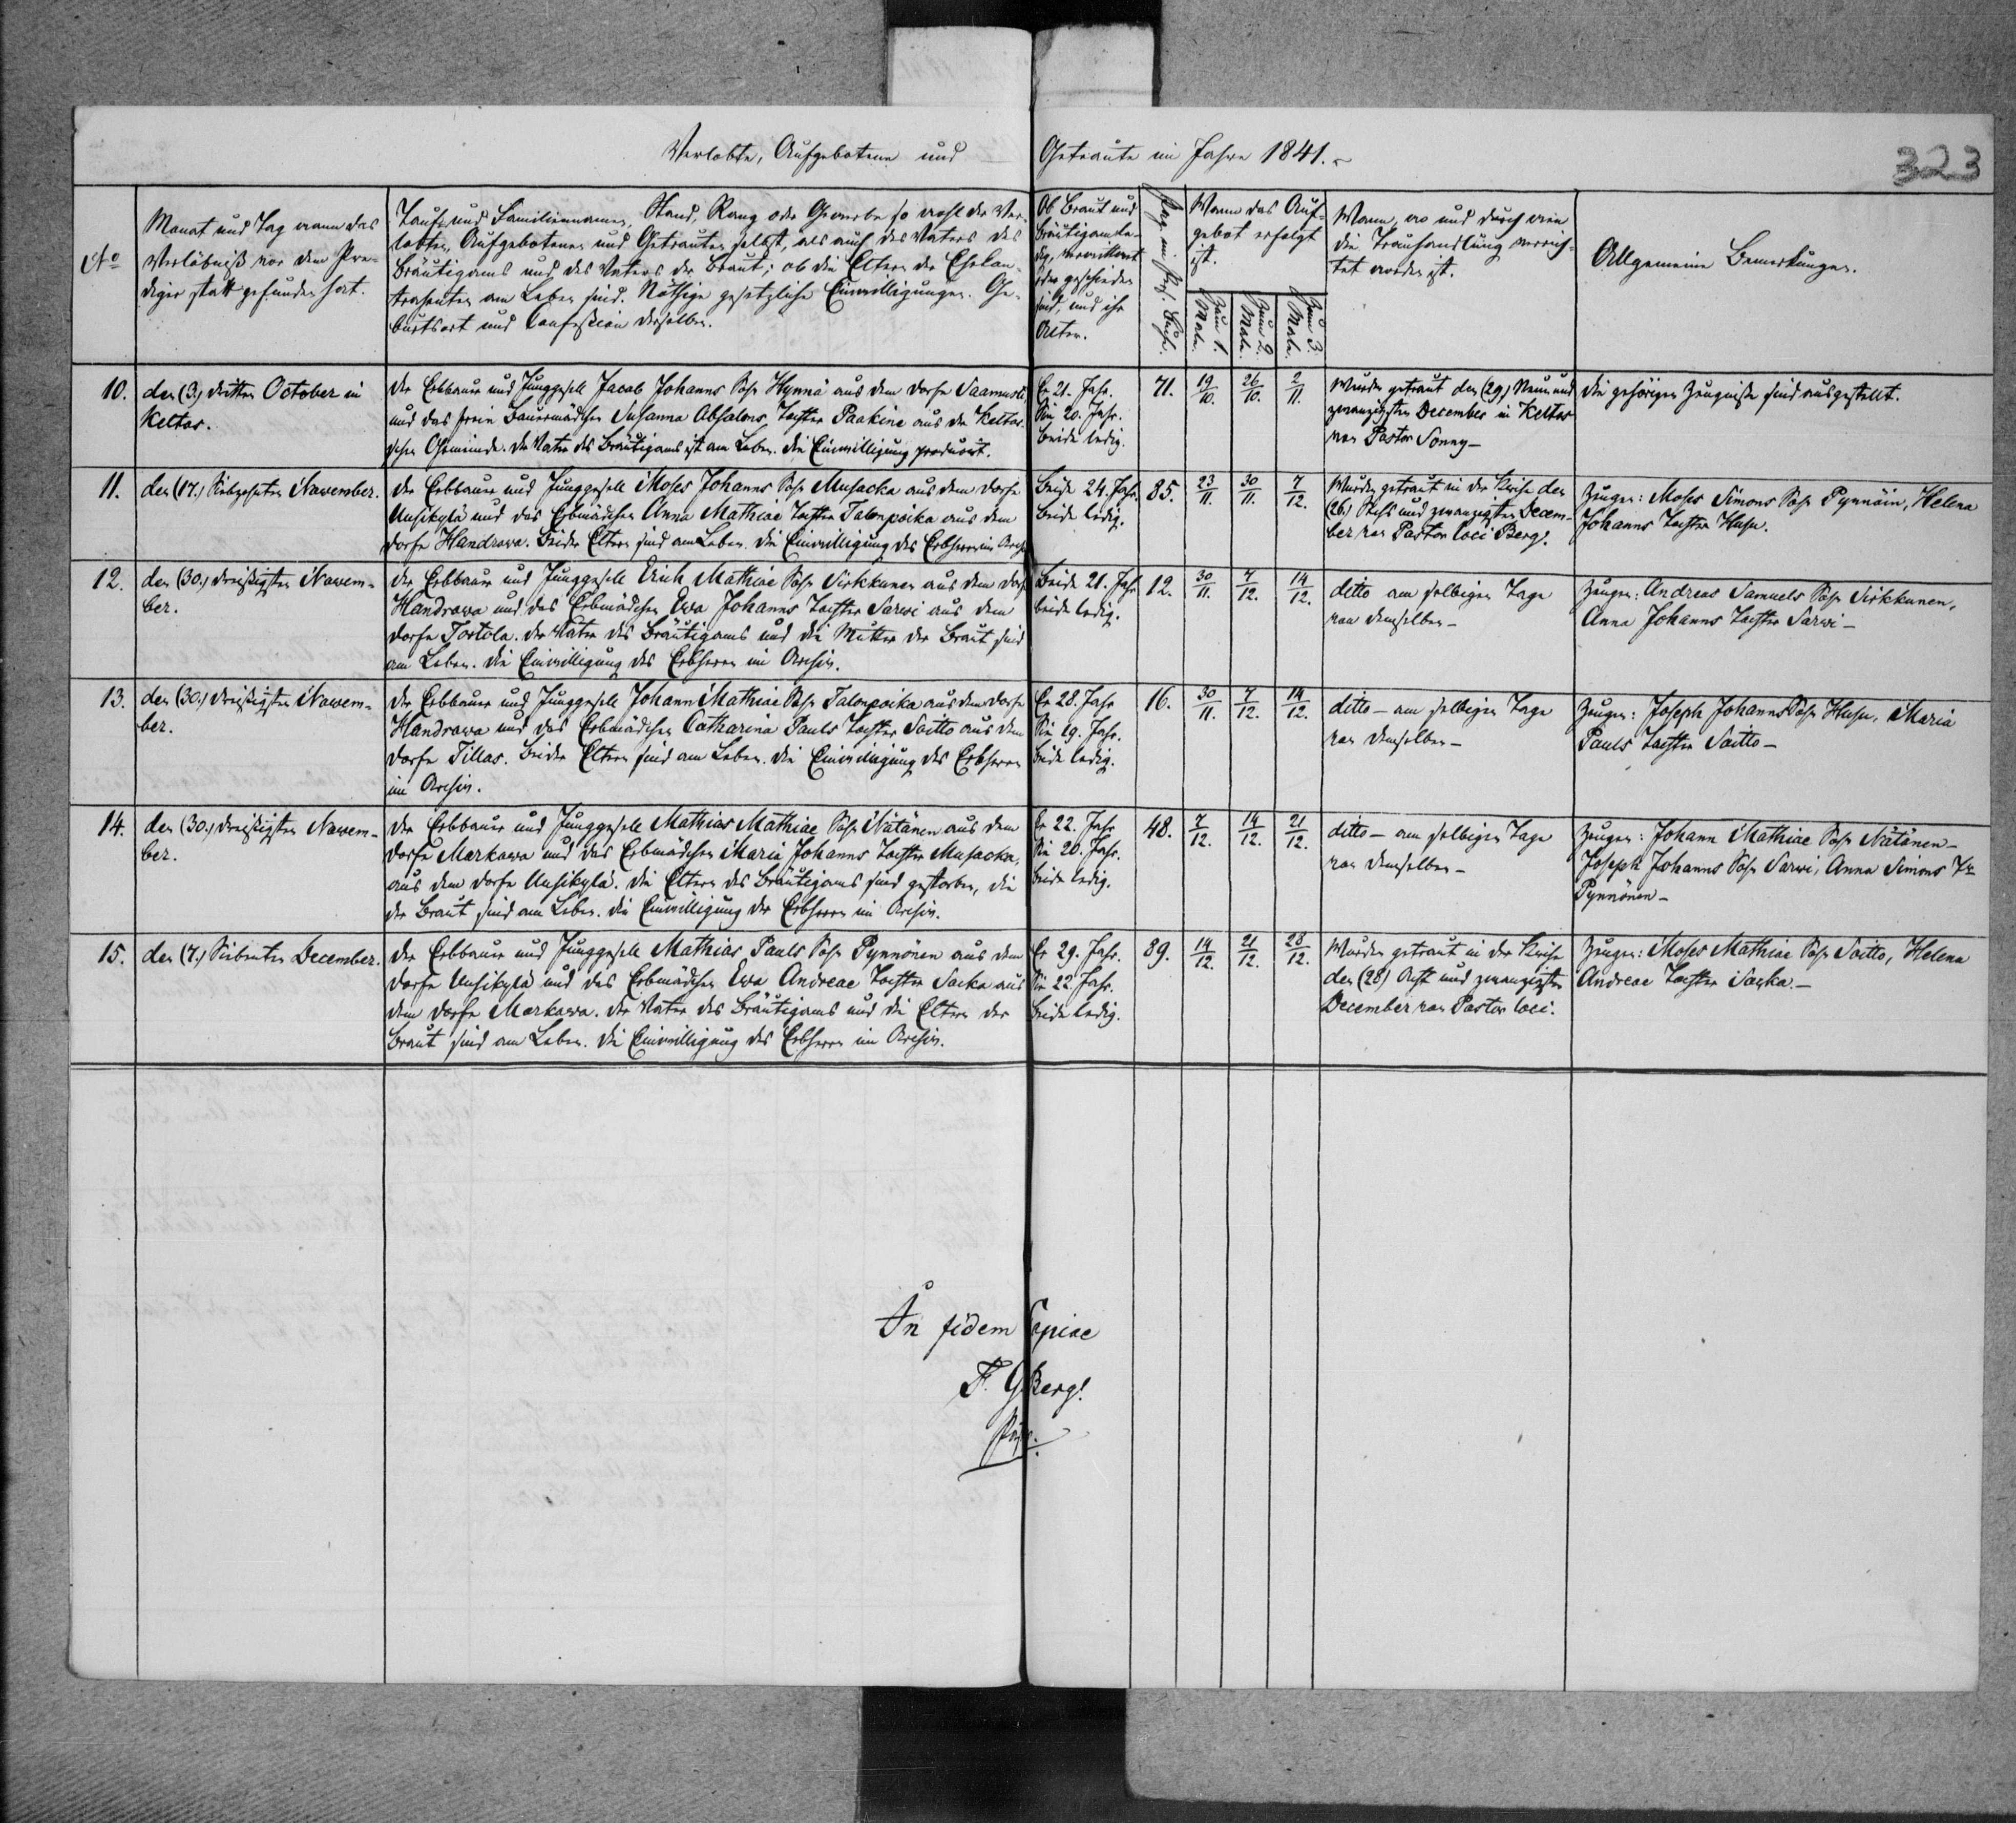 Verlobte, Aufgebotene und Getraute im Jahre 1841.
323
No
Monat und Tag wann das
Verlöbniß vor dem Pre-
diger statt gefunden hat.
Tauf- und Familiennamen, Stand, Rang oder Gewerbe so wohl der Ver-
lobten, Aufgebotenen und Getrauten selbst, als auch des Vaters des
Bräutigams und des Vaters der Braut; ob die Eltern der Ehekon-
trahenten am Leben sind. Nöthige gesetzliche Einwilligungen. Ge-
burtsort und Confession derselben.
Ob Braut und
Bräutigam le-
dig, verwittwet
oder geschieden
sind, und ihr
Alter.
Pag. im
Wann das Auf-
gebot erfolgt
ist.
Zum 1.
Male.
Zum 2.
Male.
Zum 3.
Male.
Wann, wo und durch wen
die Trauhandlung verrich-
tet worden ist.
Allgemeine Bemerkungen.
10.
den (3.) dritten October in
Keltos.
Der Erbbauer und Junggesell Jacob Johanns Sohn Hynnä aus dem Dorfe
und das freie Bauermädchen Susanna Absalons Tochter Paakine aus der Keltos-
schen Gemeinde. Der Vater des Bräutigams ist am Leben. Die Einwilligung producirt.
Er 21. Jahr.
Sie 20. Jahr.
beide ledig.
71.
19/10.
26/10.
2/11.
Wurden getraut den (29.) Neun und
zwanzigsten December in Keltos
von Pastor Sonny—
Die gehörigen Zeugnisse sind ausgestellt.
11.
den (17.) Siebzehnten November.
Der Erbbauer und Junggesell Moses Johanns Sohn Musacka aus dem Dorfe
Uusikylä und das Erbmädchen Anna Mathiae Tochter Talonpoika aus dem
Dorfe Handrowa. Beider Eltern sind am Leben. Die Einwilligung des Erbherrn im Archiv.
Beide 24. Jahr.
Beide ledig.
85.
23/11.
30/11.
7/12.
Wurden getraut in der Kirche den
(26.) Sechs und zwanzigsten Decem-
ber von Pastor loci Bergh.
Zeugen: Moses Simons Sohn Pynnöin, Helena
Johanns Tochter
12.
den (30.) dreißigsten Novem-
ber.
Der Erbbauer und Junggesell Erich Mathiae Sohn Sirkkunen aus dem Dorfe
Handrowa und das Erbmädchen Ewa Johanns Tochter Sarwi aus dem
Dorfe Tortola. Der Vater des Bräutigams und die Mutter der Braut sind
am Leben. Die Einwilligung des Erbherrn im Archiv.
Beide 21. Jahr
beide ledig.
12.
30/11.
7/12.
14/12.
ditto am selbigen Tage
von demselben—
Zeugen: Andreas Samuels Sohn Sirkkunen,
Anna Johanns Tochter Sarwi—
13.
den (30.) dreißigsten Novem-
ber.
Der Erbbauer und Junggesell Johann Mathiae Sohn Talonpoika aus dem Dorfe
Handrowa und das Erbmädchen Catharina Pauls Tochter Soitto aus dem
Dorfe Tillas. Beider Eltern sind am Leben. Die Einwilligung des Erbherrn
im Archiv.
Er 28. Jahr
Sie 19. Jahr.
Beide ledig.
16.
30/11.
7/12.
14/12.
ditto— am selbigen Tage
von demselben—
Zeugen: Joseph Johanns Sohn Maria
Pauls Tochter Soitto—
14.
den (30.) dreißigsten Novem-
ber.
Der Erbbauer und Junggesell Mathias Mathiae Sohn Nätänen aus dem
Dorfe Markowa und das Erbmädchen Maria Johanns Tochter Musacka,
aus dem Dorfe Uusikylä. Die Eltern des Bräutigams sind gestorben, die
der Braut sind am Leben. Die Einwilligung der Erbherrn im Archiv.
Er 22. Jahr
Sie 20. Jahr.
Beide ledig.
48.
7/12.
14/12.
21/12.
ditto— am selbigen Tage
von demselben—
Zeugen: Johann Mathiae Sohn Nätänen—
Joseph Johanns Sohn Sarwi, Anna Simons Tr
Pynnönen—
15.
den (7.) Siebenten December.
Der Erbbauer und Junggesell Mathias Pauls Sohn Pynnönen aus dem
Dorfe Uusikylä und das Erbmädchen Ewa Andreae Tochter Sacka aus
dem Dorfe Markowa. Der Vater des Bräutigams und die Eltern der
Braut sind am Leben. Die Einwilligung des Erbherrn im Archiv.
Er 29. Jahr.
Sie 22. Jahr.
Beide ledig.
89.
14/12.
21/12.
28/12.
Wurden getraut in der Kirche
den (28) Acht und zwanzigsten
December von Pastor loci.
Zeugen: Moses Mathiae Sohn Soitto, Helena
Andreae Tochter Sacka.—
In fidem Copiae
F. G Bergh